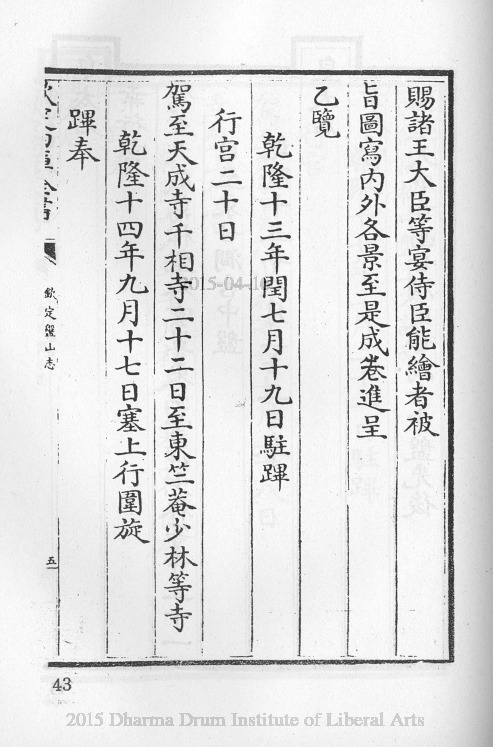 賜諸王大臣等宴侍臣能繪者被
旨圖寫内外各景至是成卷進呈
乙覽
乾隆十三年閏七月十九日駐蹕
行宫二十日
駕至天成寺千相寺二十二日至東竺菴少林等寺
乾隆十四年九月十七日塞上行圍旋
蹕奉
欽定四庫全書
欽定盤山志
五
43
2015-04-16
2015 Dharma Drum Institute of Liberal Arts